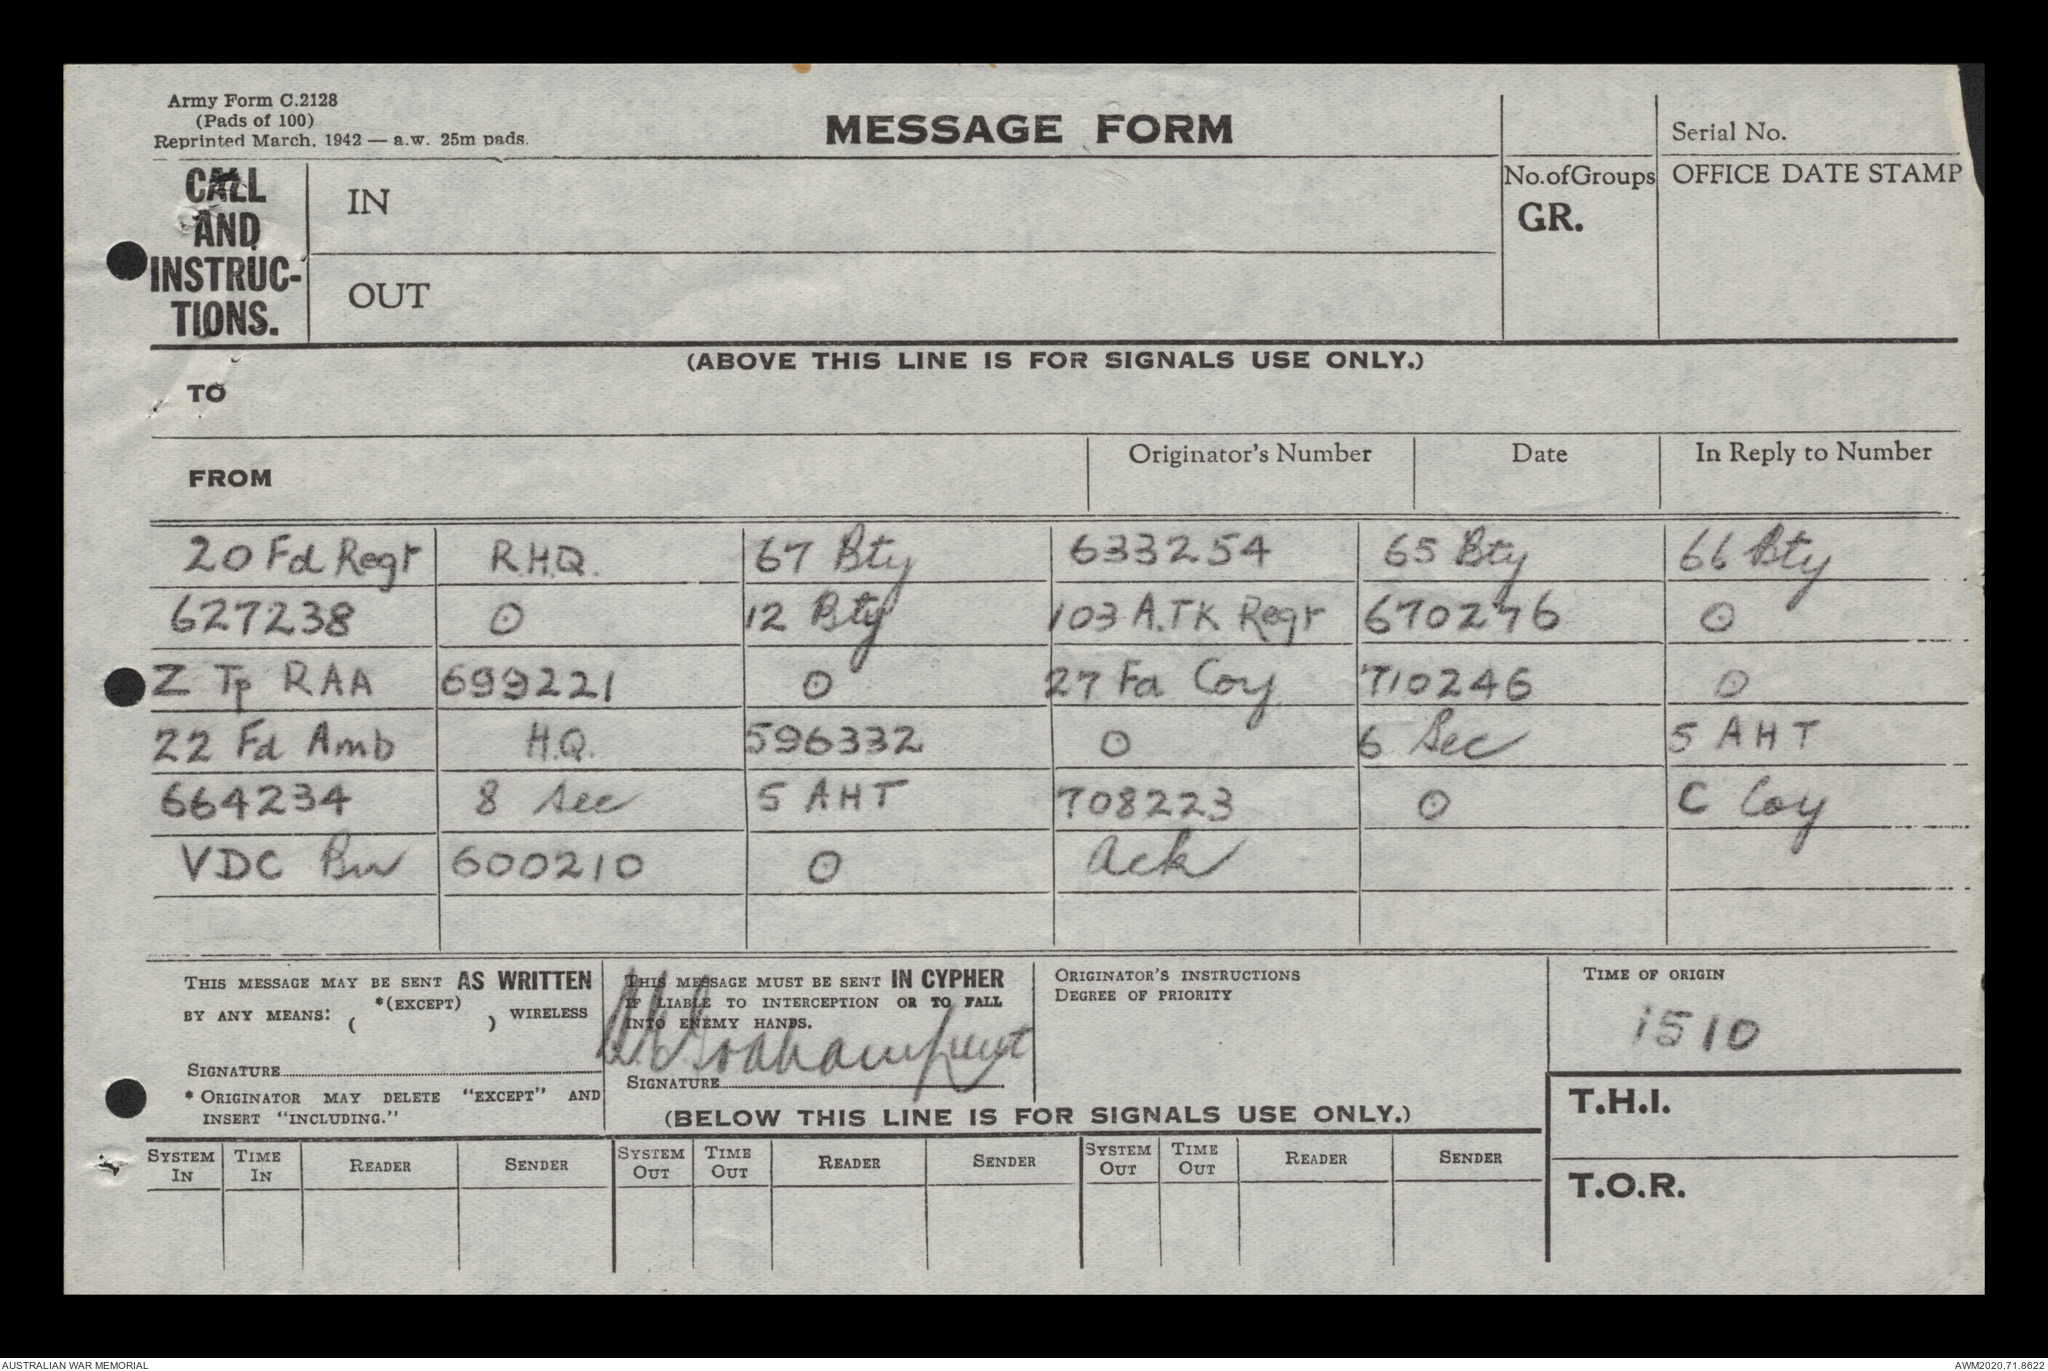 Army Form C.2128
(Pads of 100)
Reprinted March, 1942 — a.w. 25m pads.
MESSAGE FORM
Serial No.
CALL AND INSTRUC-TIONS.
IN
No.ofGroups
GR.
OFFICE DATE STAMP
OUT
(ABOVE THIS LINE IS FOR SIGNALS USE ONLY.)
TO
FROM
Originator's Number
Date
In Reply to Number
20 Fd Regt R.H.Q. 67 Bty 633254 65 Bty 66 Bty
627238 ⊙ 12 Bty 103 A.TK Regt 670276 ⊙
Z Tp RAA 699221 ⊙ 27 Fd Coy 710246 ⊙
22 Fd Amb H.Q. 596332 ⊙ 6 Sec 5 AHT
664234 8 Sec 5 AHT 708223 ⊙ C Coy
VDC Bn 600210 ⊙ Ack
THIS MESSAGE MAY BE SENT AS WRITTEN
BY ANY MEANS: *(EXCEPT) ( ) WIRELESS
SIGNATURE
* ORIGINATOR MAY DELETE "EXCEPT" AND
INSERT "INCLUDING."
THIS MESSAGE MUST BE SENT IN CYPHER
IF LIABLE TO INTERCEPTION OR TO FALL
INTO ENEMY HANDS.
SIGNATURE
ORIGINATOR'S INSTRUCTIONS
DEGREE OF PRIORITY
TIME OF ORIGIN
1510
(BELOW THIS LINE IS FOR SIGNALS USE ONLY.)
T.H.I.
T.O.R.
SYSTEM IN TIME IN READER SENDER SYSTEM OUT TIME OUT READER SENDER SYSTEM OUT TIME OUT READER SENDER
AUSTRALIAN WAR MEMORIAL
AWM2020.71.8622